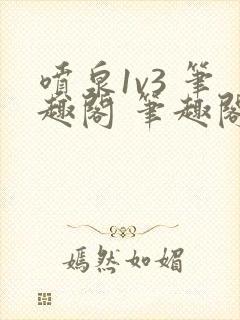 噴泉1v3 筆
趣閣 筆趣閣
嫣然如媚